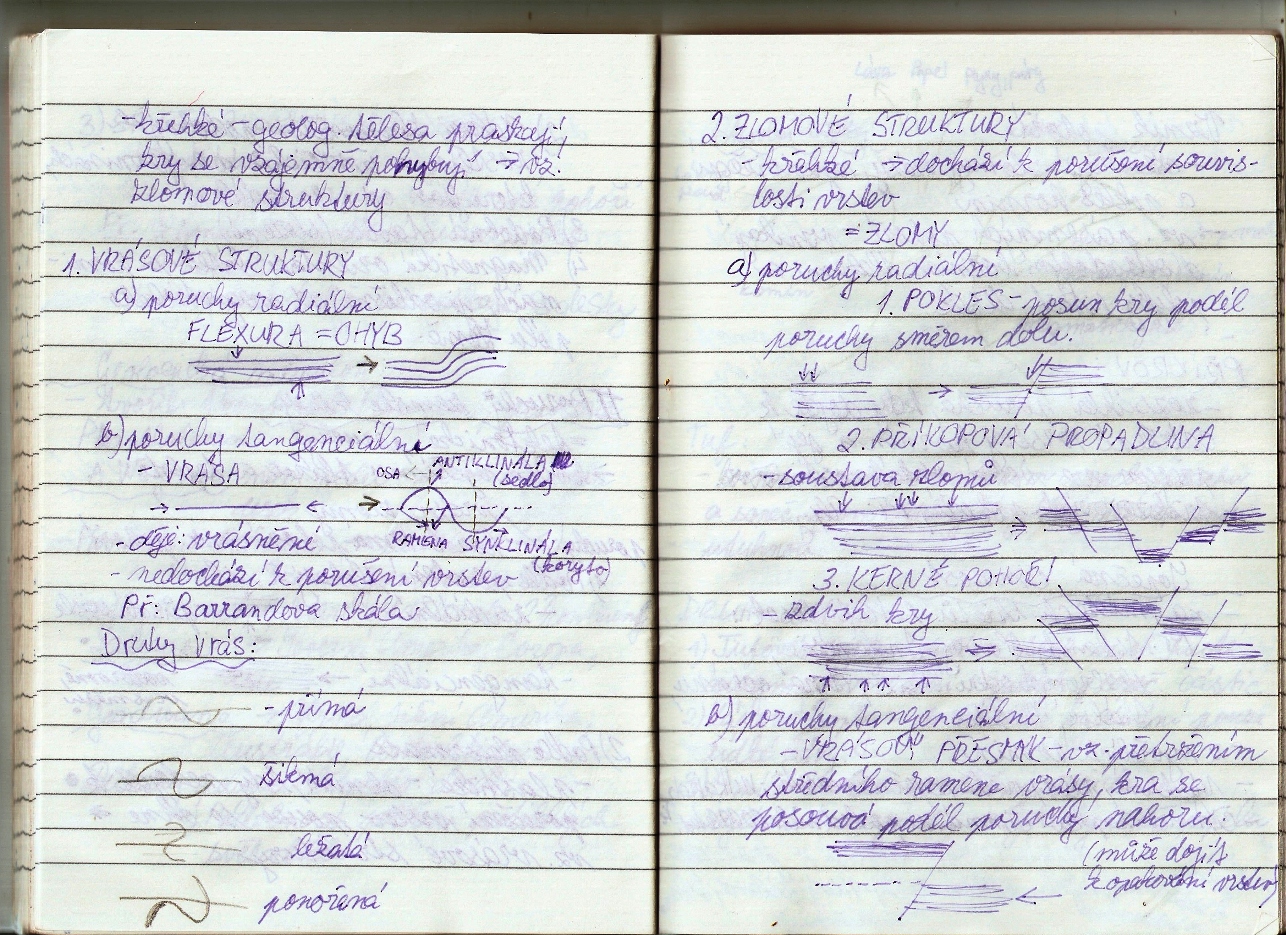 - křehké - geolog. tělesa praskají,
kry se vzájemně pohybují → vz.
zlomové struktury
1. VRÁSOVÉ STRUKTURY
a) poruchy radiální
FLEXURA = OHYB
b) poruchy tangenciální
- VRÁSA
OSA ← ANTIKLINÁLA
(sedlo)
RAMENA SYNKLINÁLA
(koryto)
- děj: vrásnění
- nedochází k porušení vrstev
Př: Barrandova skála
Druhy vrás:
- přímá
šikmá
ležatá
ponořená
2. ZLOMOVÉ STRUKTURY
- křehké → dochází k porušení souvis-
losti vrstev
= ZLOMY
a) poruchy radiální
1. POKLES - posun kry podél
poruchy směrem dolu.
2. PŘÍKOPOVÁ PROPADLINA
- soustava zlomů
3. KERNÉ POHOŘÍ
- zdvih kry
b) poruchy tangenciální
- VRÁSOVÝ PŘESMYK - vz. přetržením
středního ramene vrásy, kra se
posouvá podél poruchy nahoru.
(může dojít
k opakování vrstev)